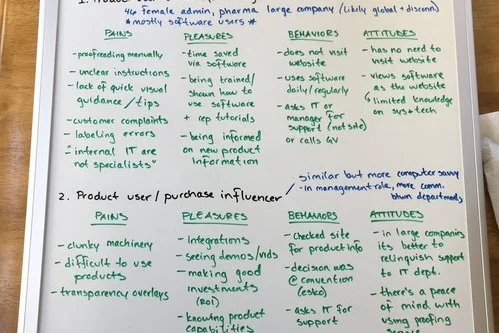 1. Product user
46 female admin, pharma large company (likely global + disconn
*mostly software users*
PAINS
- proofreading manually
- unclear instructions
- lack of quick visual
guidance / tips
- customer complaints
- labeling errors
- "internal IT are
not specialists"
PLEASURES
- time saved
via software
- being trained/
shown how to
use software
+ rep tutorials
- being informed
on new product
information
BEHAVIORS
- does not visit
website
- uses software
daily/regularly
- asks IT or
manager for
support (not site)
or calls GV
ATTITUDES
- has no need to
visit website
- views software
as the website
↳ limited knowledge
on sys + tech
2. Product user / purchase influencer
similar but more computer savvy
- in management role, more comm.
btwn departmnts
PAINS
- clunky machinery
- difficult to use
products
- transparency overlays
PLEASURES
- integrations
- seeing demos/vids
- making good
investments
(ROI)
- knowing product
capabilities
BEHAVIORS
- checked site
for product info
- decision was
@ convention
(esko)
- asks IT for
support
ATTITUDES
- in large companies
its better to
relinquish support
to IT dept.
- there's a peace
of mind with
using proofing